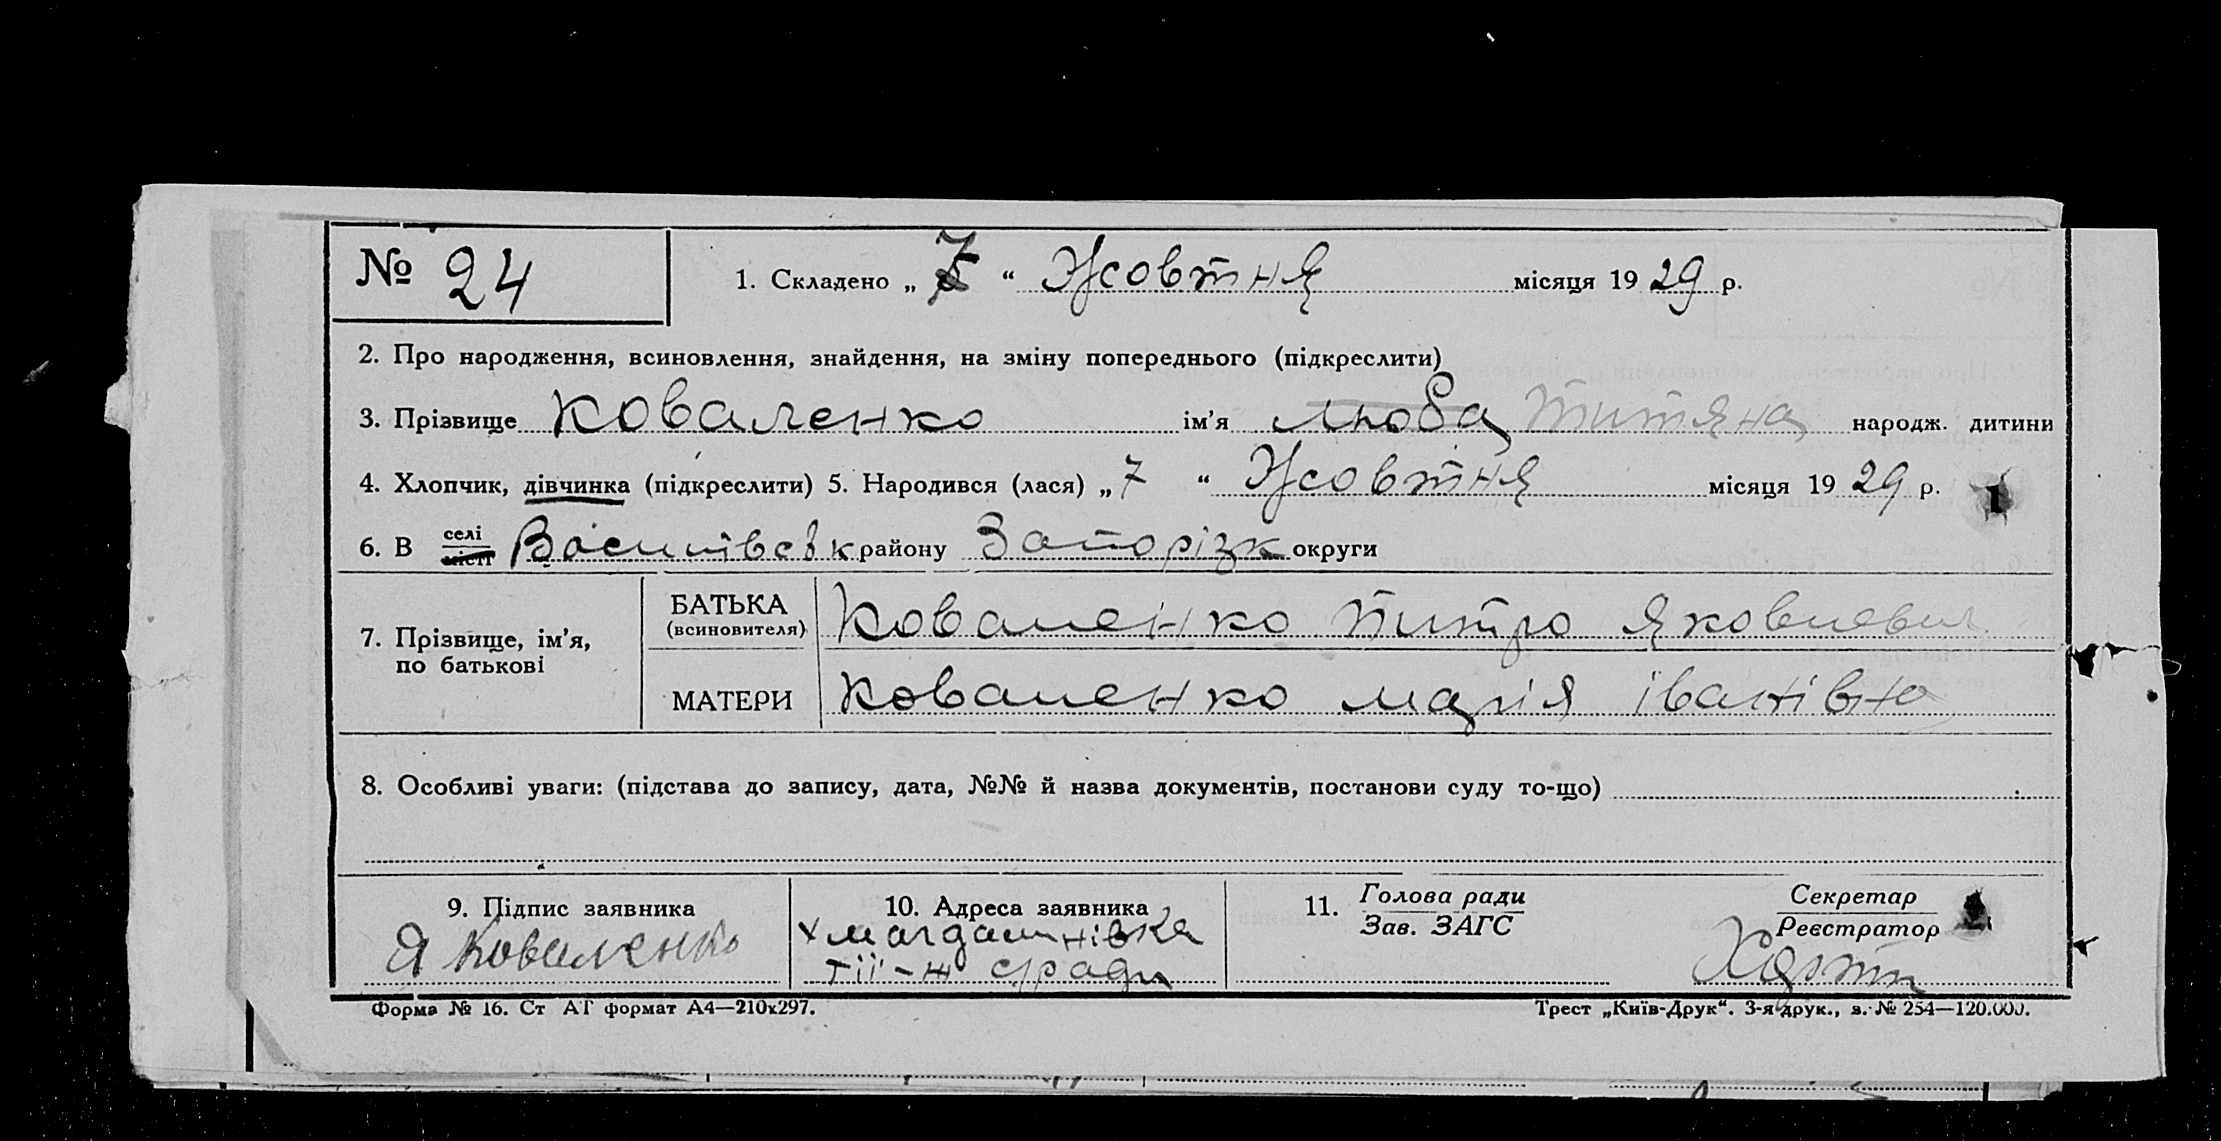 № 24
1. Складено „ 7 “ Жовтня місяця 19 29 р.
2. Про народження, всиновлення, знайдення, на зміну попереднього (підкреслити)
3. Прізвище Коваленко ім’я Люба народж. дитини
4. Хлопчик, дівчинка (підкреслити) 5. Народився (лася) „ 7 “ Жовтня місяця 19 29 р.
6. В селі місті району Запорізк округи
7. Прізвище, ім’я, по батькові
БАТЬКА (всиновителя) Коваленко Яковлевич
МАТЕРИ Коваленко Марія Іванівна
8. Особливі уваги: (підстава до запису, дата, №№ й назва документів, постанови суду то-що)
9. Підпис заявника
Я Коваленко
10. Адреса заявника
11. Голова ради
Зав. ЗАГС
Секретар
Реєстратор
Форма № 16. Ст АТ формат А4—210х297.
Трест „Київ-Друк“. 3-я друк., з. № 254—120.000.